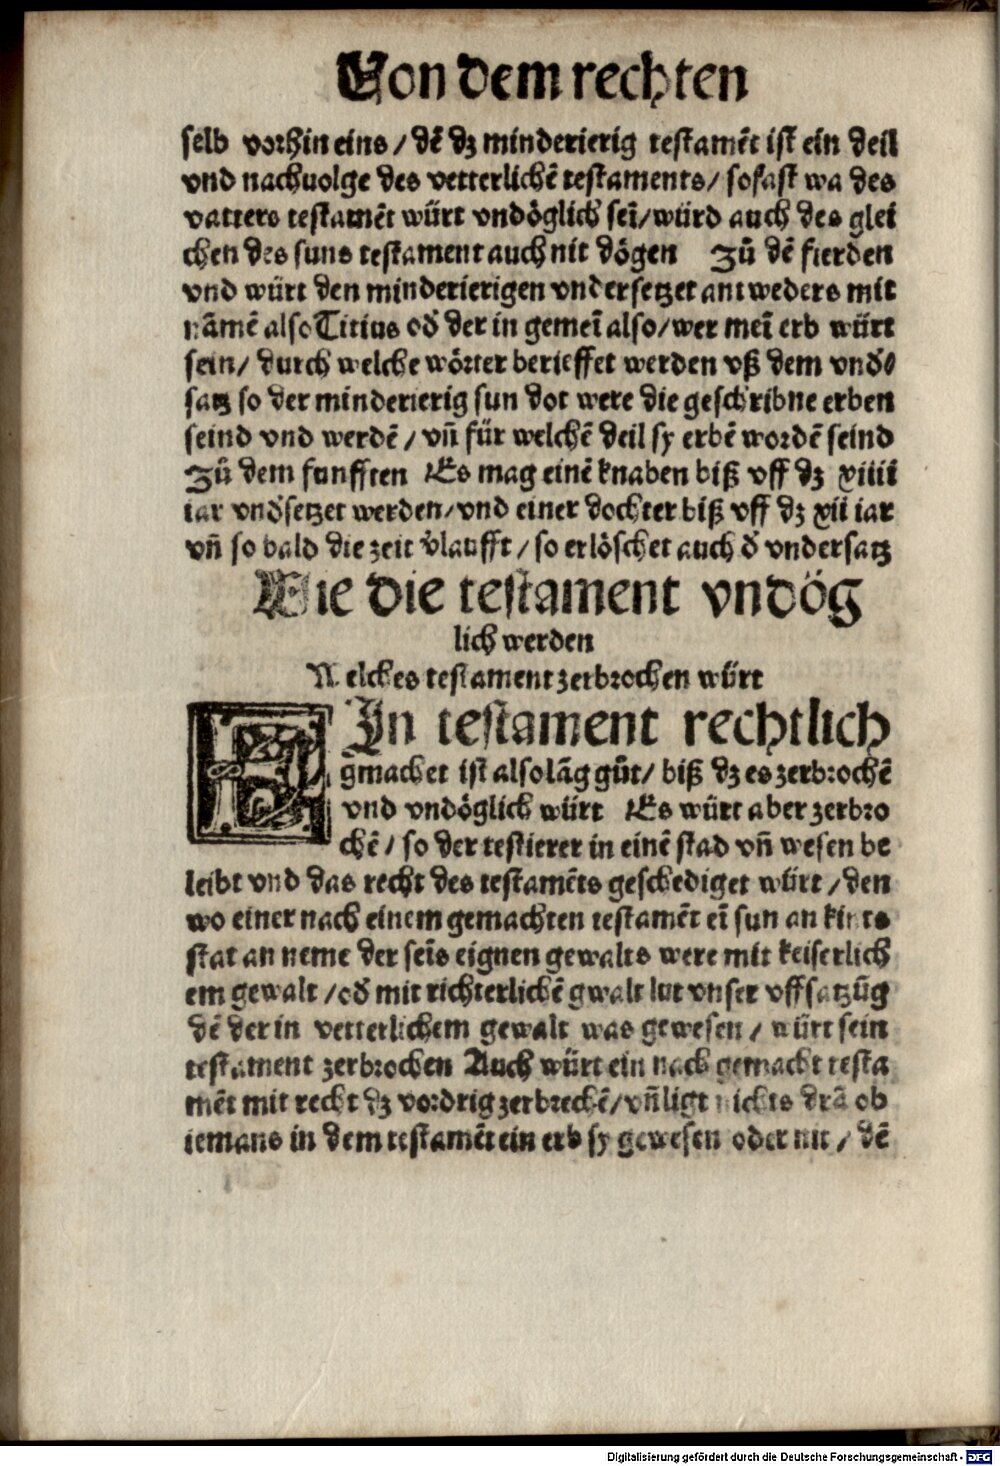 Von dem rechten
selb vorhin eins / dē dz minderierig testamēt ist ein deil
vnd nachuolge des vetterlichē testaments / so fast wa des
vatters testamēt würt vndöglich sei / würd auch des glei
chen des suns testament auch nit dögen Zů dē fierden
vnd würt den minderierigen vndersetzet antweders mit
nāmē also Titius od̕ der in gemeī also / wer meī erb würt
sein / durch welche wörter berieffet werden vß dem vnd̕
satz so der minderierig sun dot were die geschribne erben
seind vnd werdē / vñ für welchē deil sy erbē wordē seind
Zů dem funfften Es mag einē knaben biß vff dz xiiii
iar vnd̕setzet werden / vnd einer dochter biß vff dz xii iar
vñ so bald die zeit v̕laufft / so erlöschet auch d̕ vndersatz
Wie die testament vndög
lich werden
Welches testament zerbrochen würt
EIn testament rechtlich
gmachet ist also lāg gůt / biß dz es zerbrochē
vnd vndöglich würt Es würt aber zerbro
chē / so der testierer in einē stad vñ wesen be
leibt vnd das recht des testamēts geschediget würt / den
wo einer nach einem gemachten testamēt eī sun an kints
stat an neme der seīs eignen gewalts were mit keiserlich
em gewalt / od̕ mit richterlichē gwalt lut vnser vffsatzūg
dē der in vetterlichem gewalt was gewesen / würt sein
testament zerbrochen Auch würt ein nach gemacht testa
mēt mit recht dz vordrig zerbrechē / vñ ligt nichts drā ob
iemans in dem testamēt ein erb sy gewesen oder nit / dē
Digitalisierung gefördert durch die Deutsche Forschungsgemeinschaft - DFG